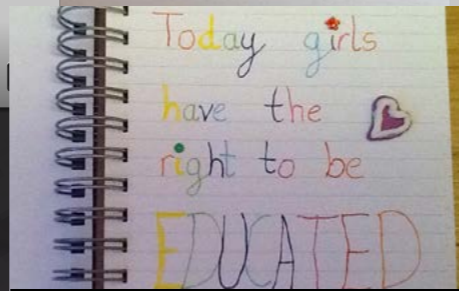 Today girls
have the
right to be
EDUCATED